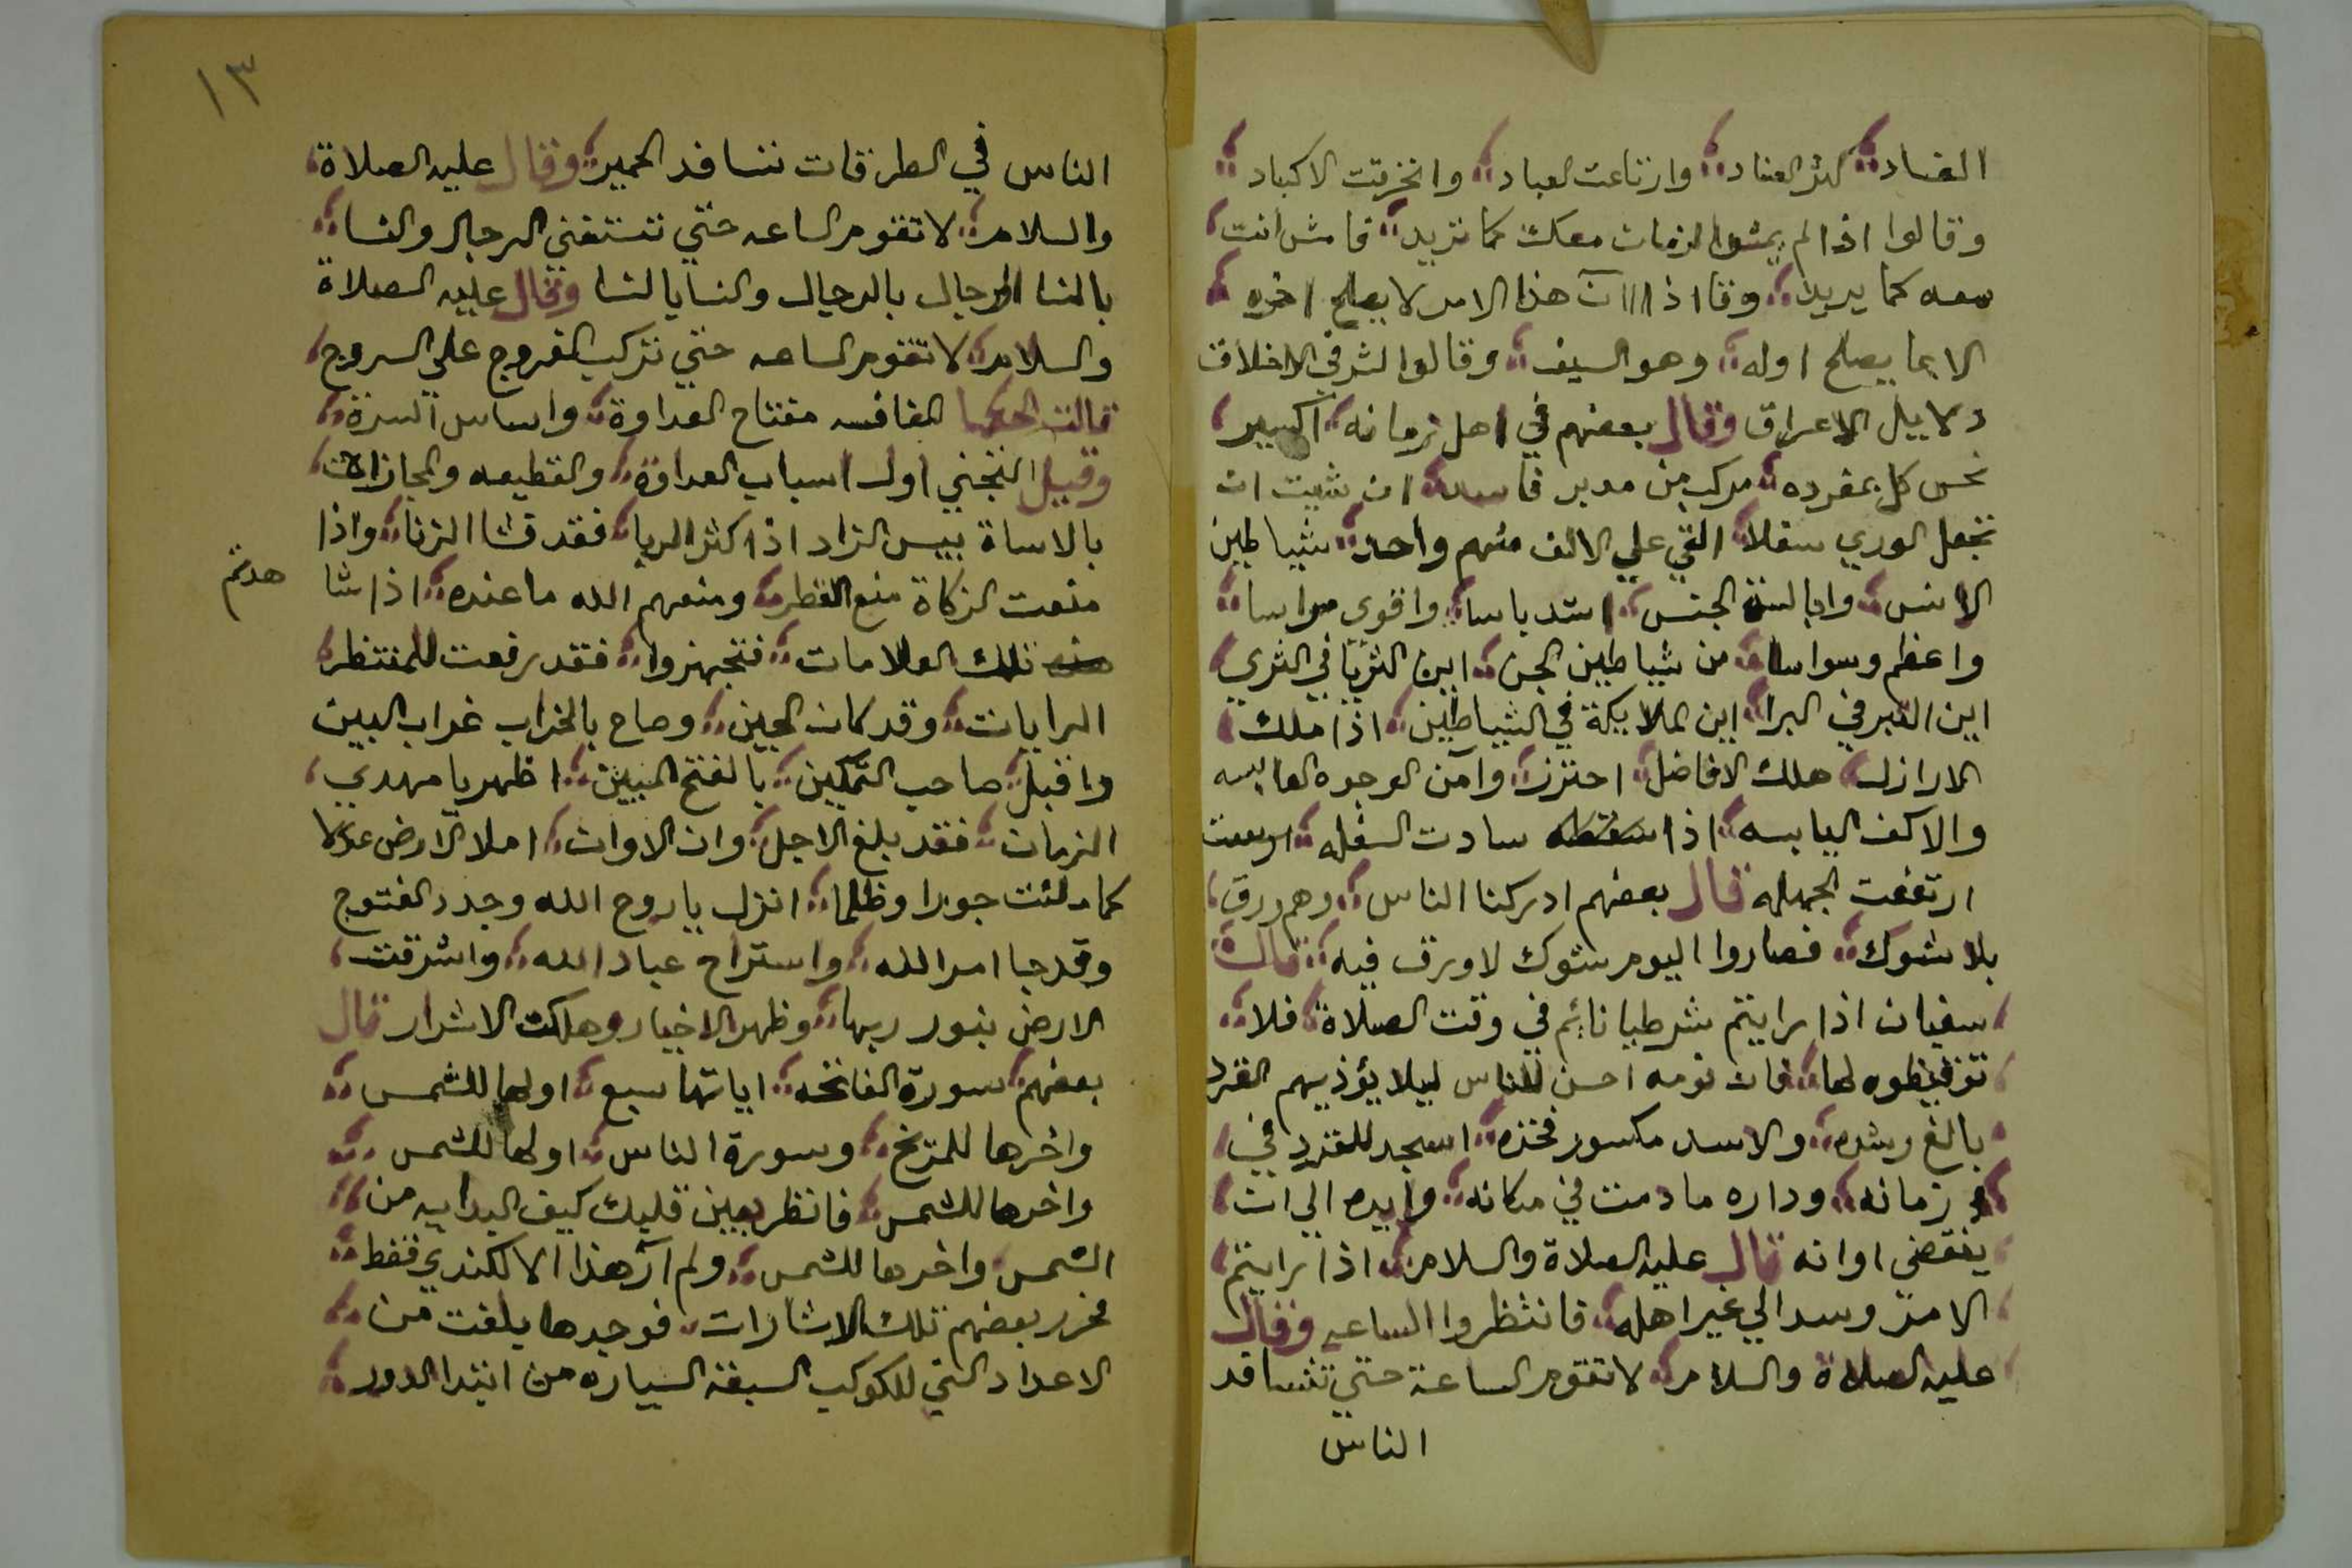 الفساد كثر العناد وارتاعت العباد وانخرقت الاكباد
وقالوا اذا لم يمشوا الزمان معك كما تريد فامش انت
معه كما يريد وقا اذا ان هذا الامر لا يصلح اخره
الا بما يصلح اوله وهو السيف وقالوا لشرف الاخلاق
دلاييل الاعراق وقال بعضهم في اهل زمانه اكسير
نحس كل بمفرده مركب من مدبر فاسد ان شيت ان
تجعل الوري سفلا القي علي الالف منهم واحد شياطين
الانس وابالسة الجنس اشد باسا واقوي مراسا
واعظم وسواسا من شياطين الجن اين الثريا في الثري
اين القبر في البرا اين الملايكة في الشياطين اذا ملك
الارازل هلك الافاضل احترز وآمن الوجوه العابسه
والاكف اليابسه اذا سادت السفله
ارتفعت الجهله قال بعضهم ادركنا الناس وهم ورق
بلا شوك فصاروا اليوم شوك لا ورق فيه قال
سفيان اذا رايتم شرطيا نائم في وقت الصلاة فلا
توقيظوه لها فان نومه احسن للناس ليلا يؤذيهم القرد
بالغ رشده والاسد مكسور فخذه اسجد للقرد في
زمانه وداره مادمت في مكانه وايده الي ان
ينقضي اوانه قال عليه الصلاة والسلام اذا رايتم
الامر وسد الي غير اهله فانتظروا الساعه وقال
عليه الصلاة والسلام لا تقوم الساعة حتي تتسافد
الناس
١٣
الناس في الطرقات تتسافد الحمير وقال عليه الصلاة
والسلام لا تقوم الساعه حتي تستغني الرجال والنسا
بالنسا الرجال بالرجال والنسا بالنسا وقال عليه الصلاة
والسلام لا تقوم الساعه حتي تركب الفروج علي السروج
قالت الحكما المنافسه مفتاح العداوة واساس السرة
وقيل التجني اول اسباب العداوة والقطيعه والمجازات
بالاساة بيس الزاد اذا كثر الربا فقد فشا الزنا واذا
منعت الزكاة منع القطر ومنعهم الله ما عنده اذا شا
هدتم
تلك العلامات فتجهزوا فقد رفعت للمنتظر
الرايات وقد كان الحين وصاح بالخراب غراب البين
واقبل صاحب التمكين بالفتح المبين اظهر يا مهدي
الزمان فقد بلغ الاجل وان الاوان املا الارض عدلا
كما ملئت جورا وظلما انزل يا روح الله وجدد الفتوح
وقد جا امر الله واستراح عباد الله واشرقت
الارض بنور ربها وظهر الاخيار وهلكت الاشرار قال
بعضهم سورة الفاتحه اياتها سبع اولها للشمس
واخرها للمريخ وسورة الناس اولها للشمس
واخرها للشمس فانظر بعين قلبك كيف البدايه من
الشمس واخرها للشمس ولم آر هذا الا للكندي فقط
فحرر بعضهم تلك الاشارات فوجدها بلغت من
الاعداد التي للكوكب السبعة السياره من ابتدا الدور